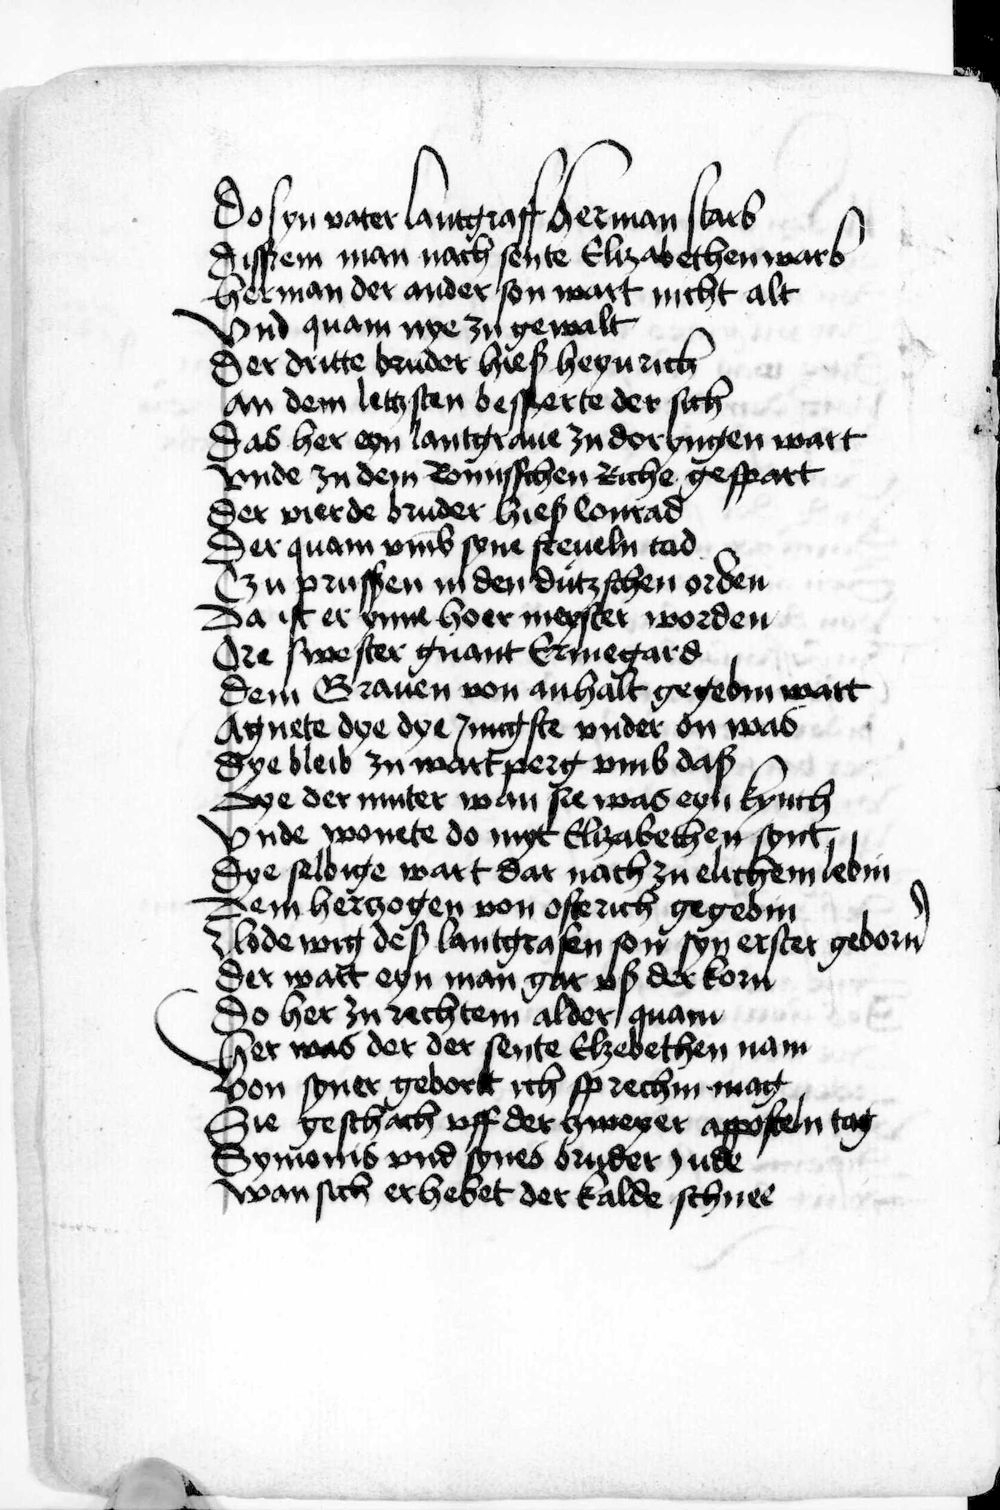 Do syn vater lantgraff herman starb
Dissem man nach sente Elizabethen warb
herman der ander son wart nicht alt
Vnd quam nye zu gewalt
Der dritte bruder hieß heynrich
an dem letzsten besserte der sich
Das her eyn lantgraue zu doryngen wart
vnde zu dem Romisschen Riche gespart
Der vierde bruder hieß Conrad
Der quam vmb syne freueln tad
Czu prussen in den dutzschen orden
Da ist er ynne hoer meyster worden
Ore swester gnant Ermegard
Dem Grauen von anhalt gegebin wart
Agnete dye dye Jungste vnder on was
Dye bleib zu wartperg vmb daß
Dye der muter wan sie was eyn kynth
Vnde wonete do myt Elizabethen synt
Dye selbige wart dar nach zu elichem lebin
Dem hertzogen von osterich gegebin
Lodewig deß lantgrafen son syn erster geborn
Der wart eyn man gar vß der korn
Do her zu rechtem alder quam
her was der der sente Elzebethen nam
Von syner gebort ich sprechin mag
Sie geschach vff der zweyer apposteln tag
Symonis vnd synes bruder Jude
wan sich erhebet der kalde schnee